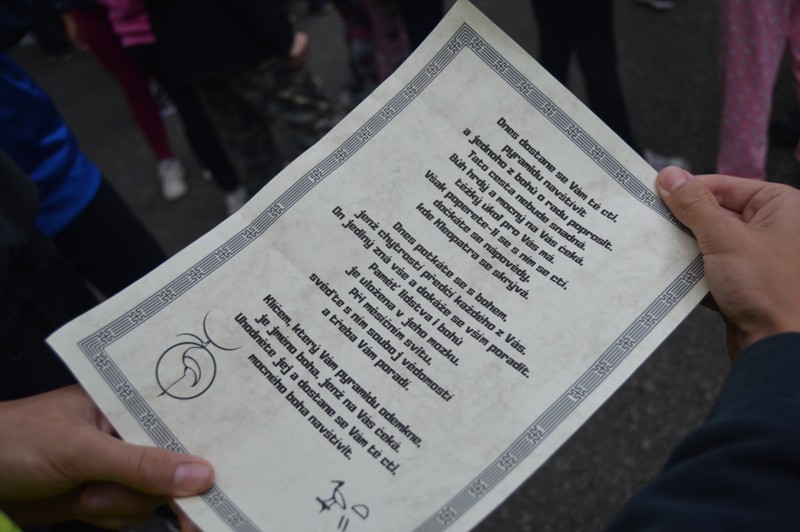 Dnes dostane se Vám té cti,
pyramidu navštívit
a jednoho z bohů o radu poprosit.
Tato cesta nebude snadná.
Bůh hrdý a mocný na Vás čeká,
těžký úkol pro Vás má.
Však poperete-li se s ním se ctí,
dočkáte se zápovědy,
kde Kleopatra se skrývá.
Dnes potkáte se s bohem,
jenž chytrostí předčí každého z Vás.
On jediný zná vše a dokáže se vším poradit.
Paměť lidstva i bohů
je uložena v jeho mozku.
Při měsíčním svitu,
svěďte s ním souboj vědomostí
a třeba Vám poradí.
Klíčem, který Vám pyramidu odemkne,
je jméno boha, jenž na Vás čeká.
Uhodněte jej a dostane se Vám té cti,
mocného boha navštívit.